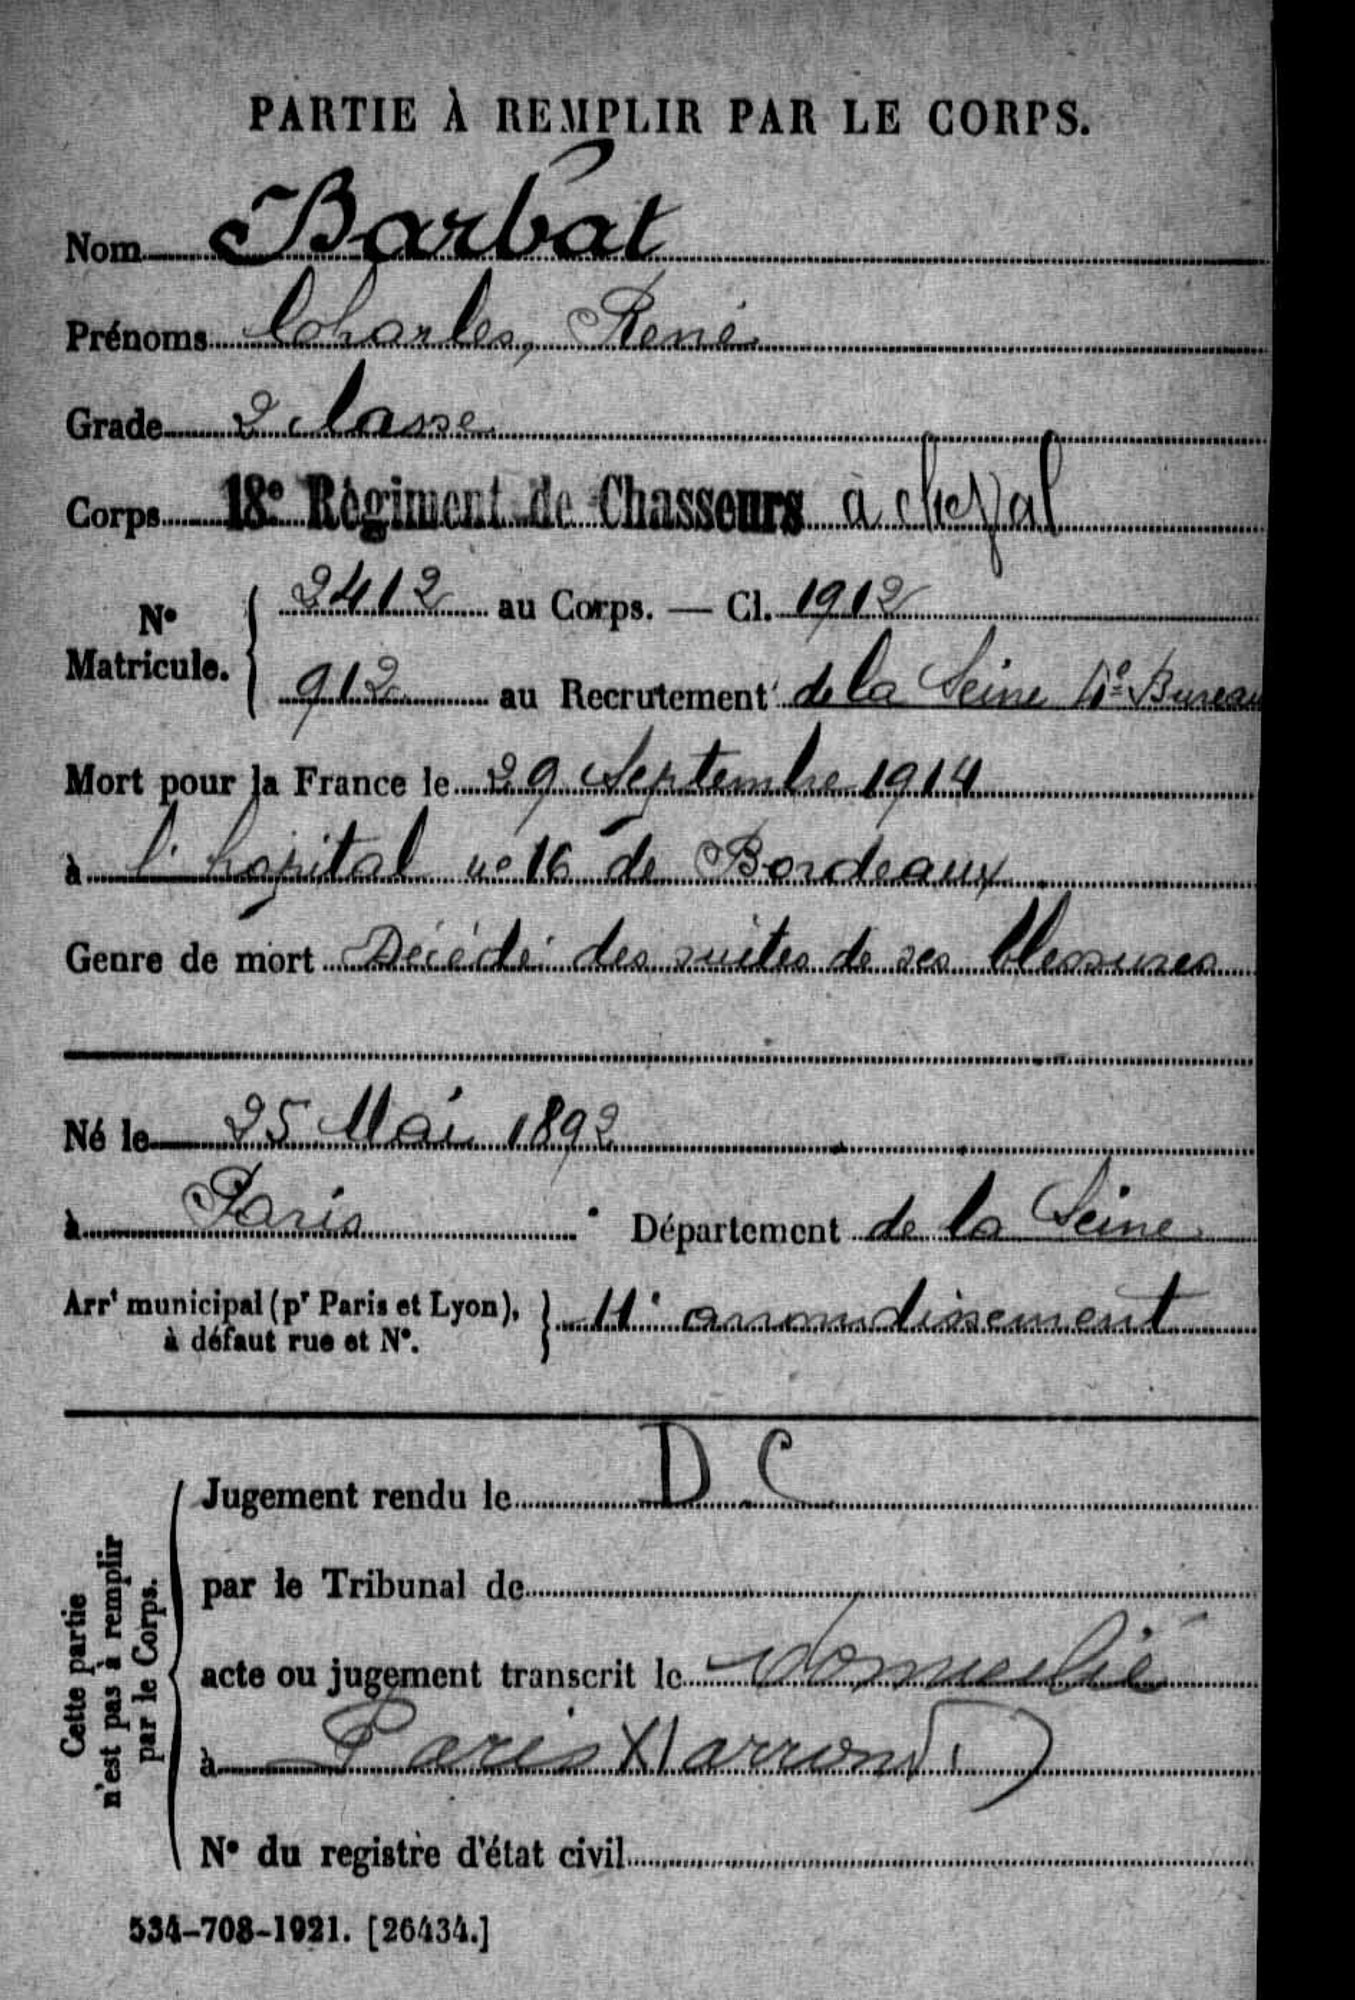 PARTIE À REMPLIR PAR LE CORPS.
Nom Barbat
Prénoms Charles, René
Grade 2 classe
Corps 18e Régiment de Chasseurs à cheval
No Matricule. { 2412 au Corps. — Cl. 1912
912 au Recrutement de la Seine 4e Bureau
Mort pour la France le 29 Septembre 1914
à l'hôpital no 16 de Bordeaux
Genre de mort Décédé des suites de ses blessures
Né le 25 Mai 1892
à Paris Département de la Seine
Arrt municipal (pr Paris et Lyon), } 11e arrondissement
à défaut rue et No.
Cette partie
n'est pas à remplir
par le Corps.
Jugement rendu le D.C
par le Tribunal de
acte ou jugement transcrit le domicilié
à Paris XI arrondt
No du registre d'état civil
534-708-1921. [26434.]